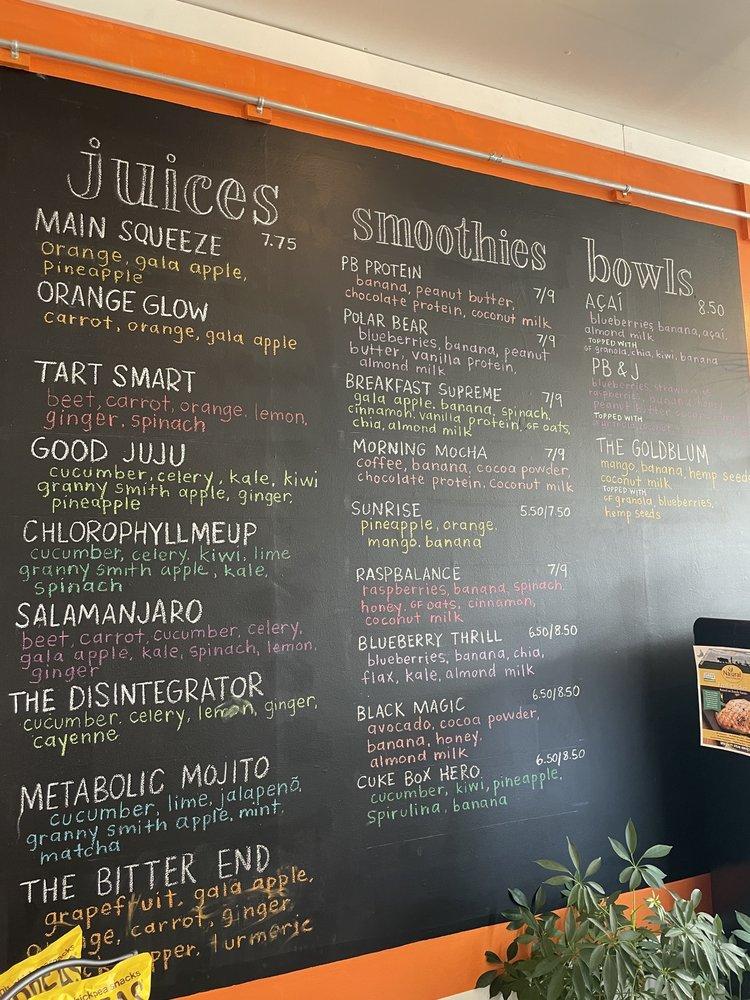 juices
MAIN SQUEEZE 7.75
orange, gala apple,
pineapple
ORANGE GLOW
carrot, orange, gala apple
TART SMART
beet, carrot, orange, lemon,
ginger, spinach
GOOD JUJU
cucumber, celery, kale, kiwi
granny smith apple, ginger,
pineapple
CHLOROPHYLLMEUP
cucumber, celery, kiwi, lime
granny smith apple, kale,
spinach
SALAMANJARO
beet, carrot, cucumber, celery,
gala apple, kale, spinach, lemon,
ginger
THE DISINTEGRATOR
cucumber, celery, lemon, ginger,
cayenne
METABOLIC MOJITO
cucumber, lime, jalapenõ,
granny smith apple, mint,
matcha
THE BITTER END
grapefruit, gala apple,
carrot, ginger,
turmeric
smoothies
PB PROTEIN
banana, peanut butter, 7/9
chocolate protein, coconut milk
POLAR BEAR 7/9
blueberries, banana, peanut
butter, vanilla protein,
almond milk
BREAKFAST SUPREME 7/9
gala apple, banana, spinach,
cinnamon, vanilla protein, GF oats,
chia, almond milk
MORNING MOCHA 7/9
coffee, banana, cocoa powder,
chocolate protein, coconut milk
SUNRISE 5.50/7.50
pineapple, orange,
mango, banana
RASPBALANCE 7/9
raspberries, banana, spinach
honey, GF oats, cinnamon,
coconut milk
BLUEBERRY THRILL 6.50/8.50
blueberries, banana, chia,
flax, kale, almond milk
BLACK MAGIC 6.50/8.50
avocado, cocoa powder,
banana, honey,
almond milk
CUKE BOX HERO 6.50/8.50
cucumber, kiwi, pineapple,
spirulina, banana
bowls
AÇAÍ 8.50
blueberries, banana, açaí,
almond milk
TOPPED WITH
GF granola, chia, kiwi, banana
PB & J
blueberries, strawberries,
raspberries, banana,
peanut butter,
TOPPED WITH
THE GOLDBLUM
mango, banana, hemp seeds
coconut milk
TOPPED WITH
GF granola, blueberries,
hemp seeds
Natural
chickpea snacks